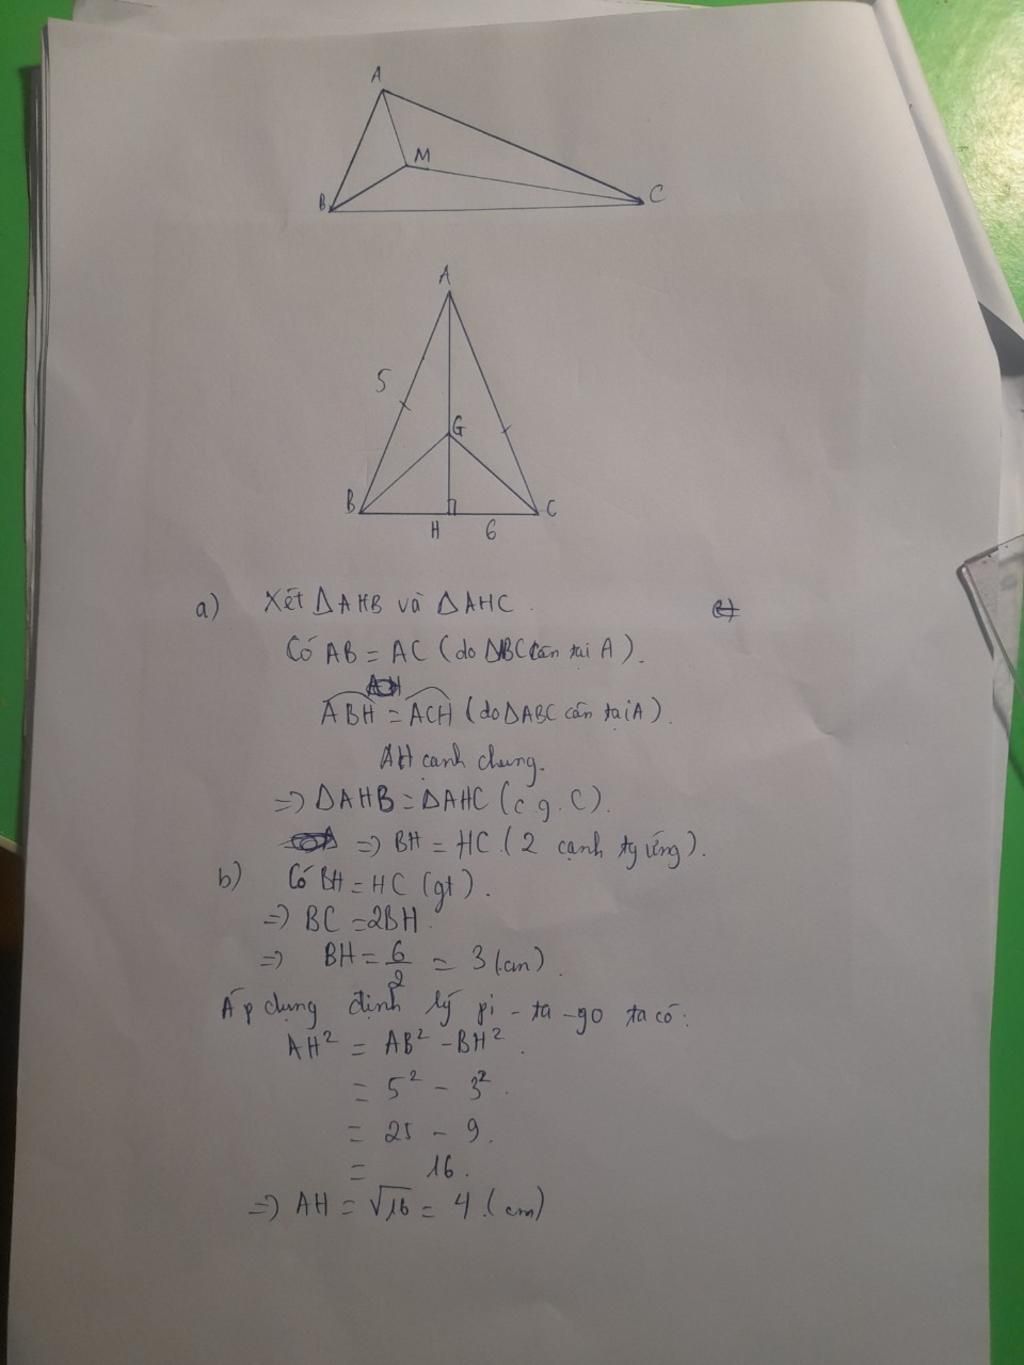 A
M
B
C
A
5
G
B
C
H
6
a) Xét ΔAHB và ΔAHC.
Có AB = AC (do ΔABC cân tại A).
ABH = ACH (do ΔABC cân tại A).
AH cạnh chung.
=> ΔAHB = ΔAHC (c.g.C).
=> BH = HC (2 cạnh tg ứng).
b) Có BH = HC (gt).
=> BC = 2BH.
=> BH = 6/2 = 3 (cm).
Áp dụng định lý pi-ta-go ta có:
AH² = AB² - BH².
= 5² - 3².
= 25 - 9.
= 16.
=> AH = √16 = 4 (cm)